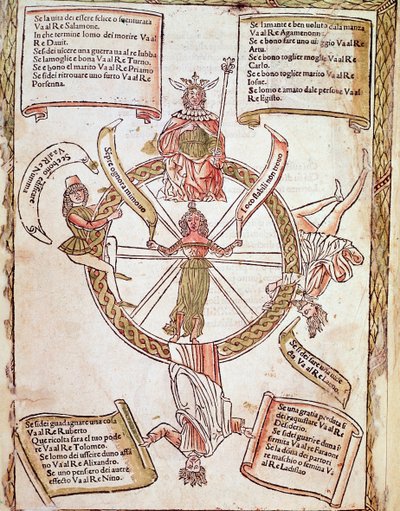 Se la vita dei essere felice o suenturata
Va al Re Salamone.
In che termine lomo dei morire Va al
Re Dauit.
Se sdei uscere una guerra va al re Iubba
Se lamoglie e bona Va al Re Turno.
Se e bono el marito Va al Re Priamo
Se sidei ritrouare uno furto Va al Re
Porsenna.
Se lamante e ben voluto dala manza
Va al Re Agamenom
Se e bono fare uno uiggio Va al Re
Artu.
Se e bono togliere moglie Va al Re
Carlo.
Se e bono togliere marito Va al Re
Iosue.
Se lomo e amato dale persone Va al
Re Egisto.
Se e bono edificare
Va al Re Numma
Sepre ognora mi mouo
Loco stabile non trouo
Se si dei fare una
Va al Re
Se sidei guadagnare una cosa
Va al Re Ruberto
Que ricolta fara el tuo pode
re Va al Re Tolomeo.
Se lomo dei uscire duno affā
no Va al Re Alixandro.
Se uno pensiero dei auere
effecto Va al Re Nino.
Se una gratia perduta si
dei raquistare Va al Re
Desiderio.
Se sidei guarire duna i
firmita Va al Re Faraone
Se la dōna dei partori
re maschio o femina Va
al Re Ladislao